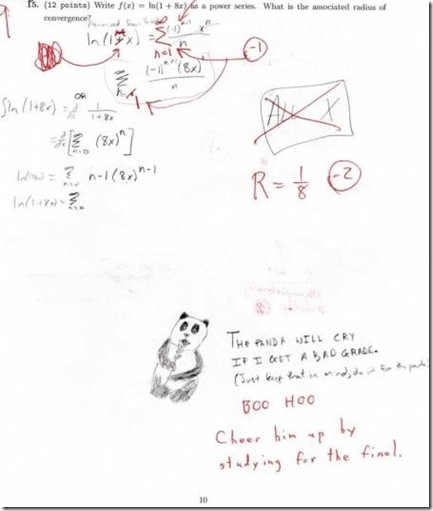 15. (12 points) Write f(x) = ln(1 + 8x) as a power series. What is the associated radius of
convergence?
ln(1+x) = ∑ (-1)ⁿ⁺¹ xⁿ / n
n=1
-1
∑ (-1)ⁿ⁺¹ (8x)ⁿ / n
OR
ln(1+8x) = 1 / 1+8x
= d/dx [∑ (8x)ⁿ]
n=0
= ∑ n-1 (8x)ⁿ⁻¹
ln(1+8x) = ∑
All X
R = 1/8
-2
THE PANDA WILL CRY
IF I GET A BAD GRADE.
(Just keep that in mind, do it for the panda)
BOO HOO
Cheer him up by
studying for the final.
10